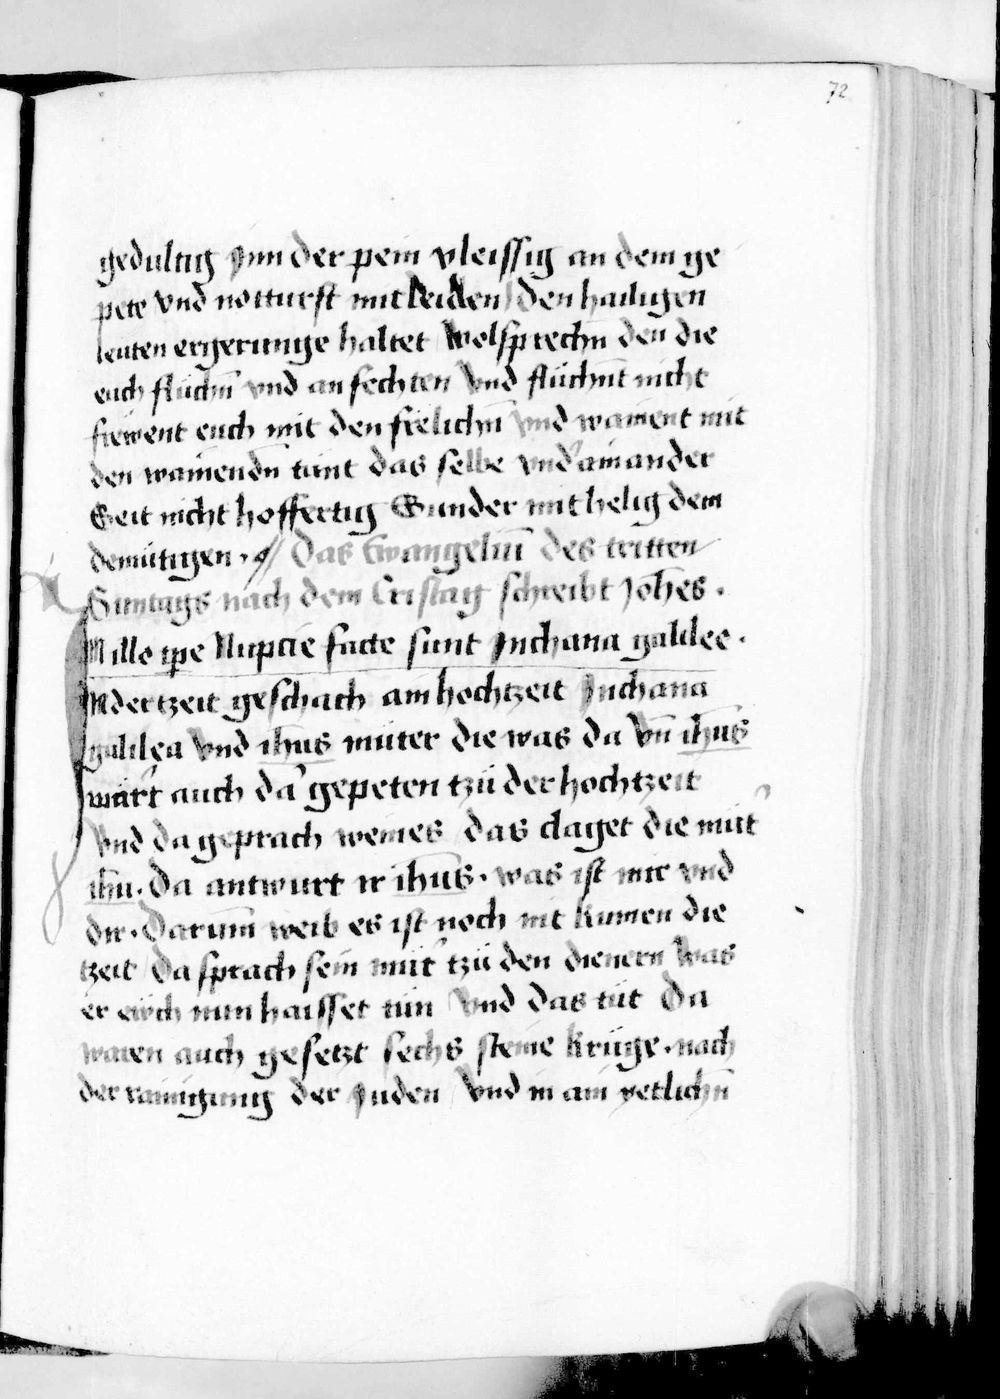 72
gedultig ynn der pein vleissig an dem ge
pete vnd notturft mitleiden den hailigen
leuten ergerunge haltet Wolsprechn̄ den die
euch flüchn̄ vnd anfechten Vnd flüchnt nicht
frëwent euch mit den frëlichn̄ Vnd wainent mit
den wainendn̄ tünt das selbe vnd' ainander
Seit nicht hoffertig Sunder mithelig dem
demütigen. Das Ewangeliū des tritten
Suntags nach dem Cristag schreibt Joh̄es.
Nuptie facte sunt Inchana galilee.
N der tzeit geschach am hochtzeit Inchana
galilea Vnd ih̄us müter die was da Vn̄ ih̄us
wart auch da gepeten tzü der hochtzeit
Vnd da geprach weines das claget die müt'
ih̄u. Da antwurt ir ih̄us. was ist mir vnd
dir. Darum̄ weib es ist noch nit kumen die
tzeit Da sprach sein müt' tzü den dienern Was
er eẅch nun haisset tün Vnd das tüt Da
waren auch gesetzt sechs steine krüge. nach
der rainigung der yuden Vnd in ain yetlichn̄